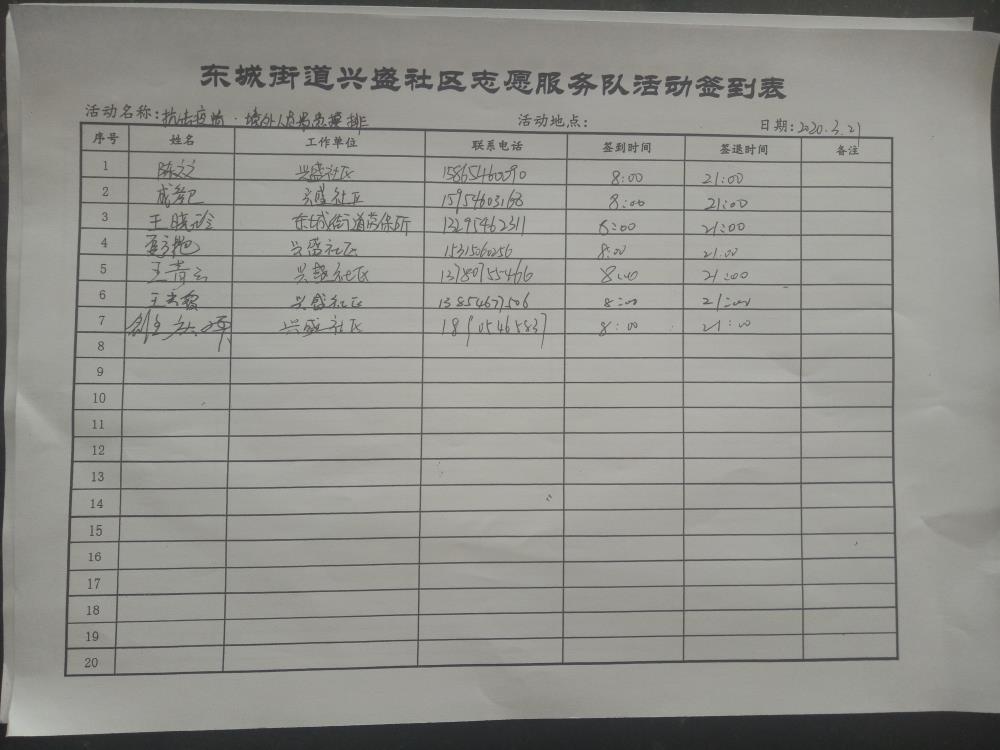 东城街道兴盛社区志愿服务队活动签到表
活动名称：抗击疫情·境外人员摸排 活动地点： 日期：2020.3.21
序号 姓名 工作单位 联系电话 签到时间 签退时间 备注
1 陈文文 兴盛社区 15865460090 8:00 21:00
2 兴盛社区 15954603168 8:00 21:00
3 王晓玲 东城街道劳保所 13295462311 8:00 21:00
4 兴盛社区 15315060256 8:00 21:00
5 王青云 兴盛社区 13780755466 8:00 21:00
6 兴盛社区 13854677506 8:00 21:00
7 兴盛社区 18905465837 8:00 21:00
8
9
10
11
12
13
14
15
16
17
18
19
20